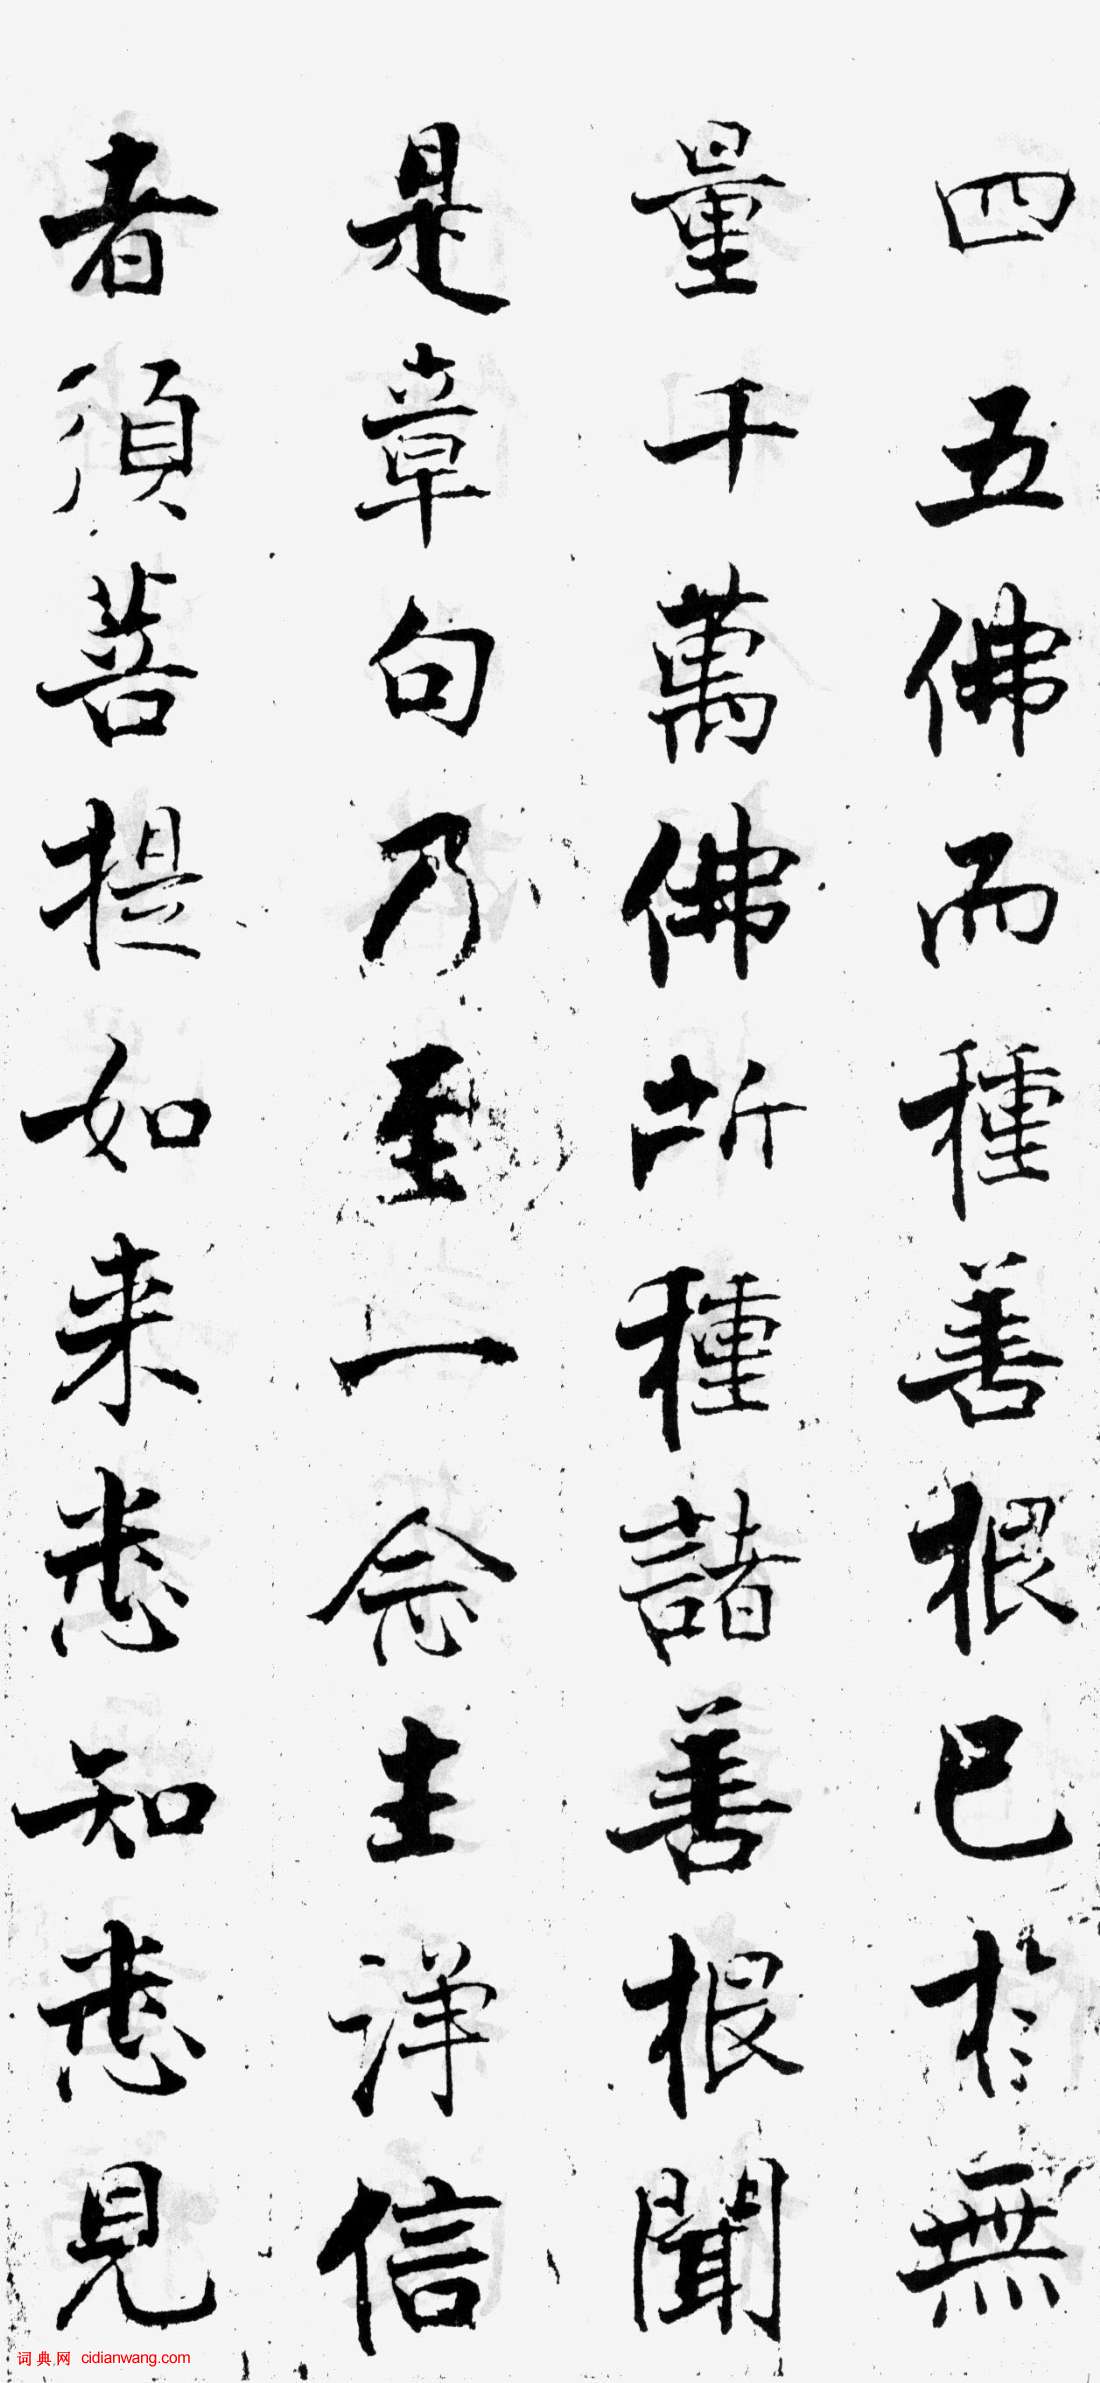 四五佛而種善根已於無
量千萬佛所種諸善根聞
是章句乃至一念生淨信
者須菩提如来悉知悉見
词典网 cidianwang.com